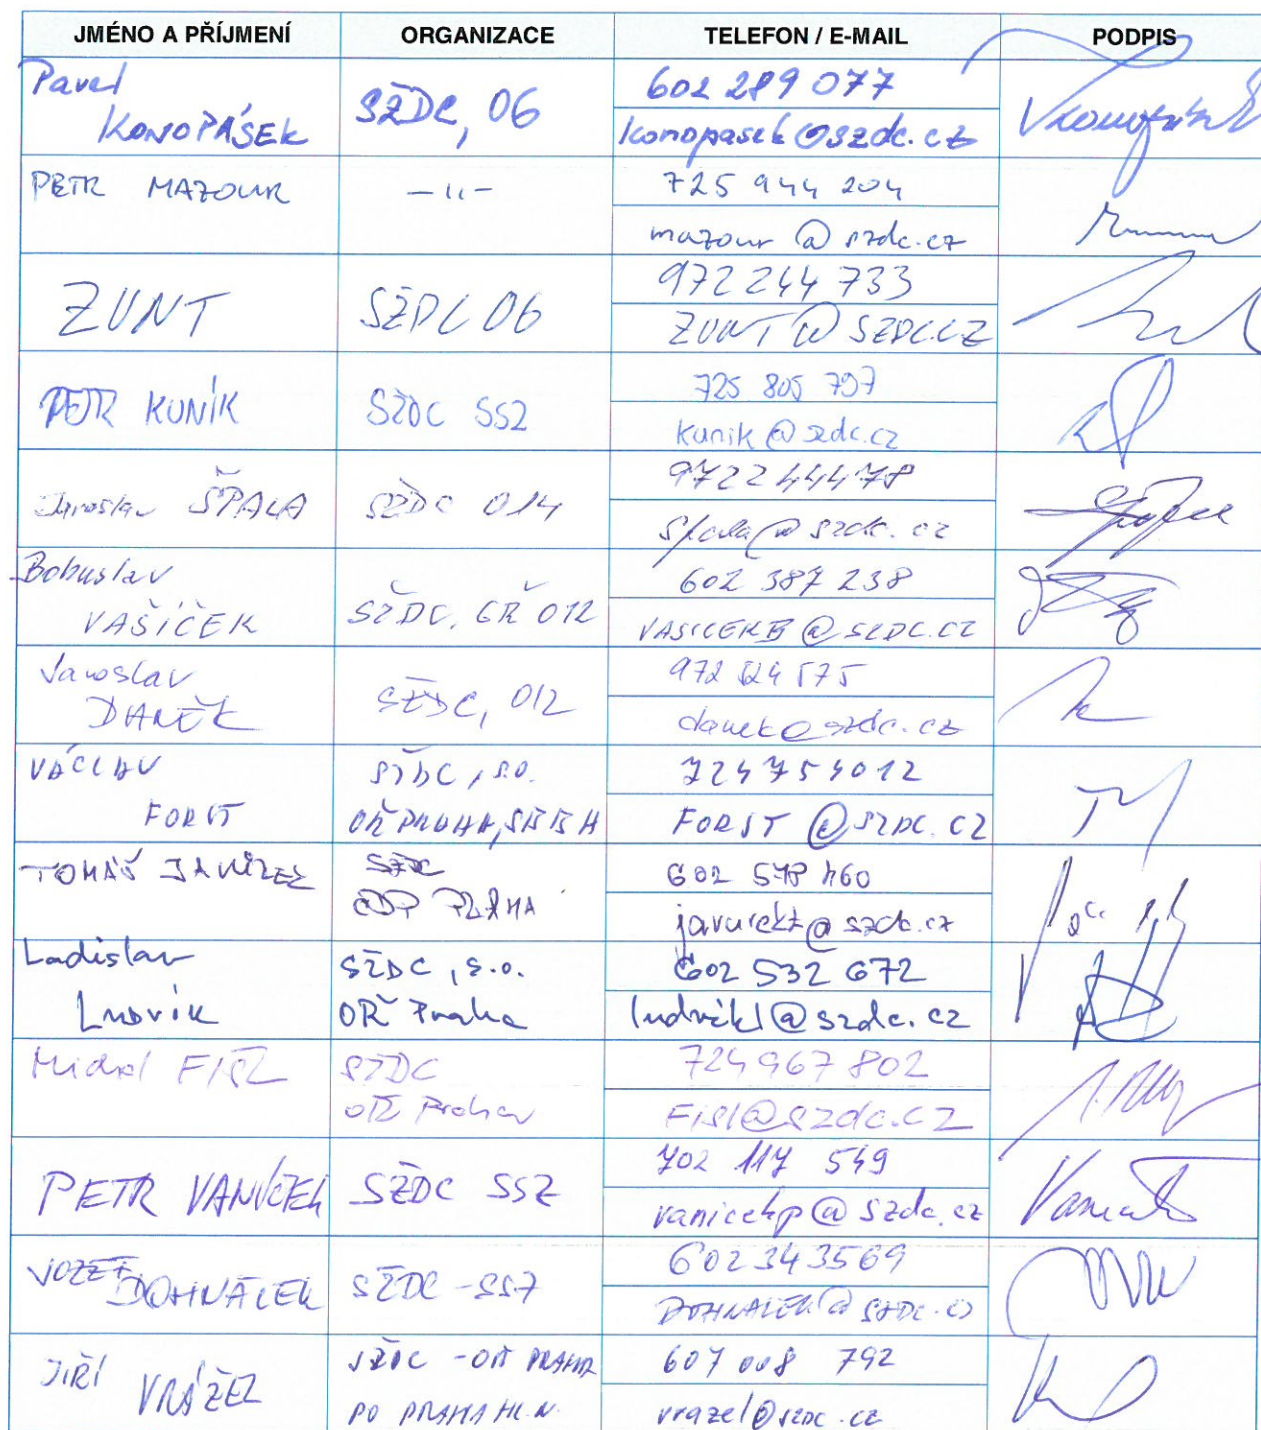 JMÉNO A PŘÍJMENÍ ORGANIZACE TELEFON / E-MAIL PODPIS
Pavel
KONOPÁSEK
SŽDC, 06
602 289 077
konopasek@szdc.cz
PETR MAZOUR
—"—
725 944 204
mazour @ szdc.cz
ZUNT
SŽDC 06
972 244 733
ZUNT @ SZDC.CZ
PETR KUNÍK
SŽDC SSZ
725 805 797
kunik@szdc.cz
Jaroslav ŠPALA
SŽDC O14
972244478
spala@szdc.cz
Bohuslav
VAŠÍČEK
SŽDC, GŘ O12
602 387 238
VASICEKB@SZDC.CZ
Jaroslav
DANĚK
SŽDC, O12
972 524 575
danek@szdc.cz
VÁCLAV
FORST
SŽDC, s.o.
OŘ PRAHA,
724754012
FORST @SZDC.CZ
TOMÁŠ
SŽDC
CDP PRAHA
602 578 460
javurekt@szdc.cz
Ladislav
Ludvík
SŽDC, s.o.
OŘ Praha
602 532 672
ludvikl@szdc.cz
Michal FIŠL
SŽDC
OŘ Praha
724967802
Fisl@szdc.cz
PETR VANÍČEK
SŽDC SSZ
702 117 549
vanicekp@szdc.cz
JOZEF
DOHNÁLEK
SŽDC -SSZ
602343569
DOHNALEK@SZDC.CZ
JIŘÍ VRÁŽEL
SŽDC - OŘ PRAHA
PO PRAHA HL.N.
607 008 792
vrazel@szdc.cz